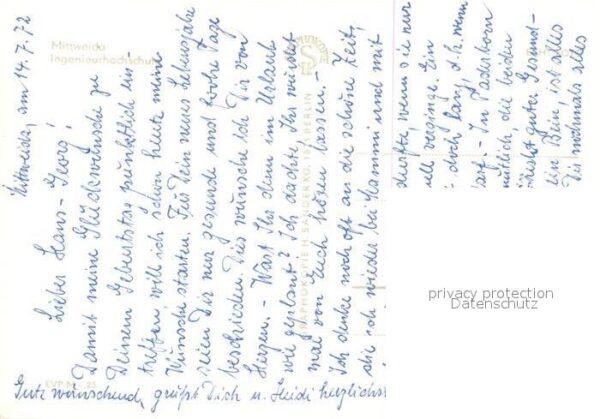 Mittweida, am 14.7.72
Lieber Hans-Georg!
Damit meine Glückswünsche zu
Deinem Geburtstag pünktlich ein-
treffen, will ich schon heute meine
Wünsche starten. Für Dein neues Lebensjahr
seien Dir nur gesunde und frohe Tage
beschieden. Dies wünsche ich Dir von
Herzen. - Wart Ihr denn im Urlaub
wie geplant? Ich dachte, Ihr würdet
mal von Euch hören lassen. -
Ich denke noch oft an die schöne Zeit,
die ich wieder bei Mammi und mit
dürfte, wenn sie nur
verginge. Ein
doch lang, d.h. wenn
darf. - In Paderborn
die beiden
guter Gesund-
ein Bein, ist alles
Dir nochmals alles
Gute wünschend, grüßt Dich u. Heidi herzlichst
Mittweida
Ingenieurhochschule
EVP M -,25
GRAPHOKOPIE H. SANDER KG, 1321 BERLIN
privacy protection
Datenschutz